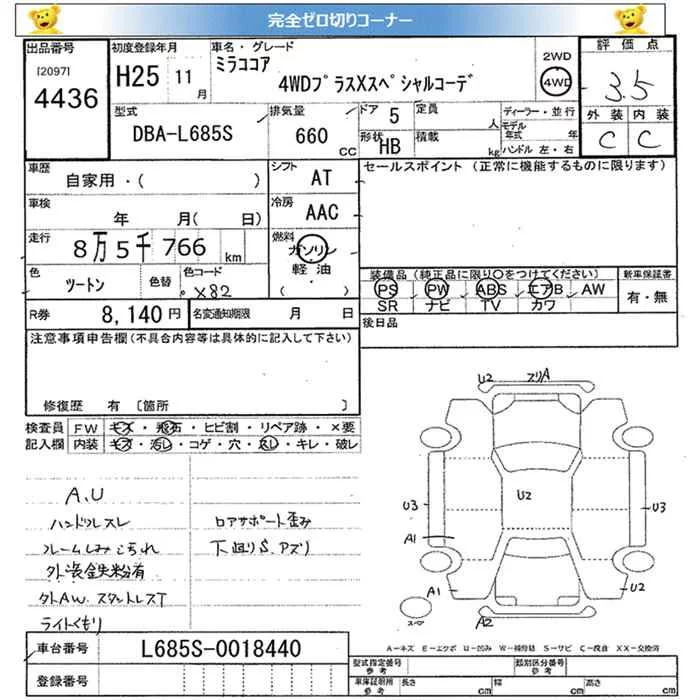 完全ゼロ切りコーナー
出品番号
[2097]
4436
初度登録年月
H25 11 月
車名・グレード
ミラココア
4WDプラスXスペシャルコーデ
2WD
4WD
評価点
3.5
外装 内装
C C
型式
DBA-L685S
排気量
660 CC
ドア 5
形状 HB
定員 人
積載 kg
ディーラー・並行
モデル年式 年
ハンドル 左・右
車歴
自家用・( )
シフト AT
セールスポイント(正常に機能するものに限ります)
車検
年 月( 日)
冷房 AAC
走行
8万5千766 km
燃料
ガソリン
軽油
( )
色
ツートン
色替
色コード
X82
装備品(純正品に限り○をつけてください)
PS PW ABS エアB AW
SR ナビ TV カワ
新車保証書
有・無
R券 8,140円
名変通知期限 月 日
後日品
注意事項申告欄(不具合内容等は具体的に記入して下さい)
修復歴 有 〔箇所 〕
検査員記入欄
FW キズ・飛石・ヒビ割・リペア跡・×要
内装 キズ・汚レ・コゲ・穴・スレ・キレ・破レ
A.U
ハンドルスレ
外装鉄粉有
外AW.スタットレスT
ライトくもり
ロアサポート歪み
下廻りS.アズリ
U2 スリA
U2
U3 U3
A1
A1 U2
A2
スペア
A-キズ E-エクボ U-凹み W-補修跡 S-サビ C-腐食 XX-交換済
車台番号 L685S-0018440
登録番号
型式指定番号 参考
類別区分番号 参考
車庫証明用 参考
長さ cm 幅 cm 高さ cm